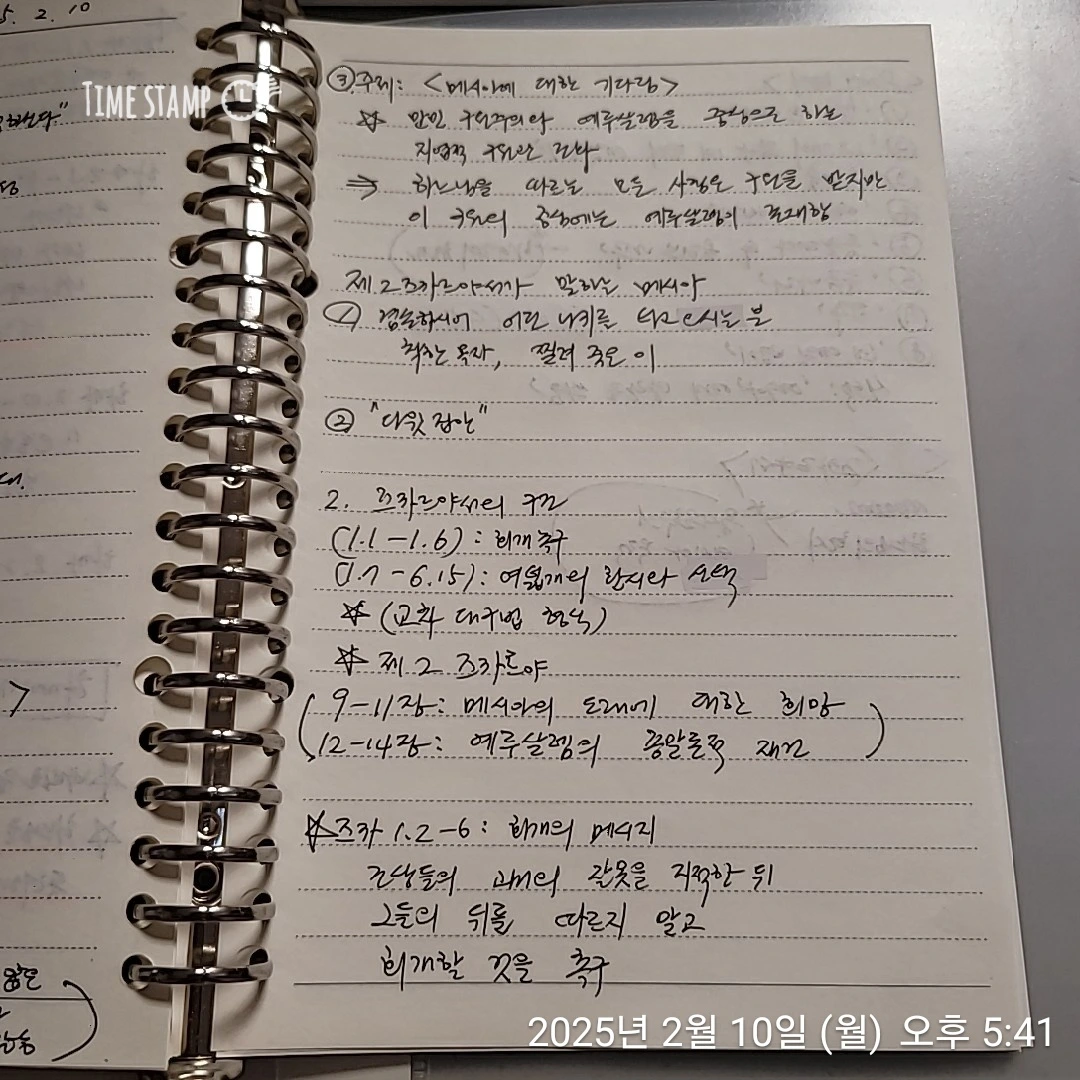 5. 2. 10
TIME STAMP
③ 주제: <메시아에 대한 기다림>
☆ 만민 구원주의와 예루살렘을 중심으로 하는
지엽적 구원관
⇒ 하느님을 따르는 모든 사람은 구원을 받지만
이 구원의 중심에는 예루살렘이 존재함
제2즈카르야서가 말하는 메시아
① 겸손하시어 어린 나귀를 타고 오시는 분
착한 목자, 찔려 죽은 이
② "다윗 집안"
2. 즈카르야서의 구조
(1.1-1.6): 회개 촉구
(1.7-6.15): 여덟개의 환시와 신탁
☆ (교차 대구법 형식)
☆ 제2 즈카르야
9-11장: 메시아의 도래에 대한 희망
12-14장: 예루살렘의 종말론적 재건
☆즈카 1.2-6: 회개의 메시지
조상들의 과거의 잘못을 지적한 뒤
그들의 뒤를 따르지 말고
회개할 것을 촉구
2025년 2월 10일 (월) 오후 5:41